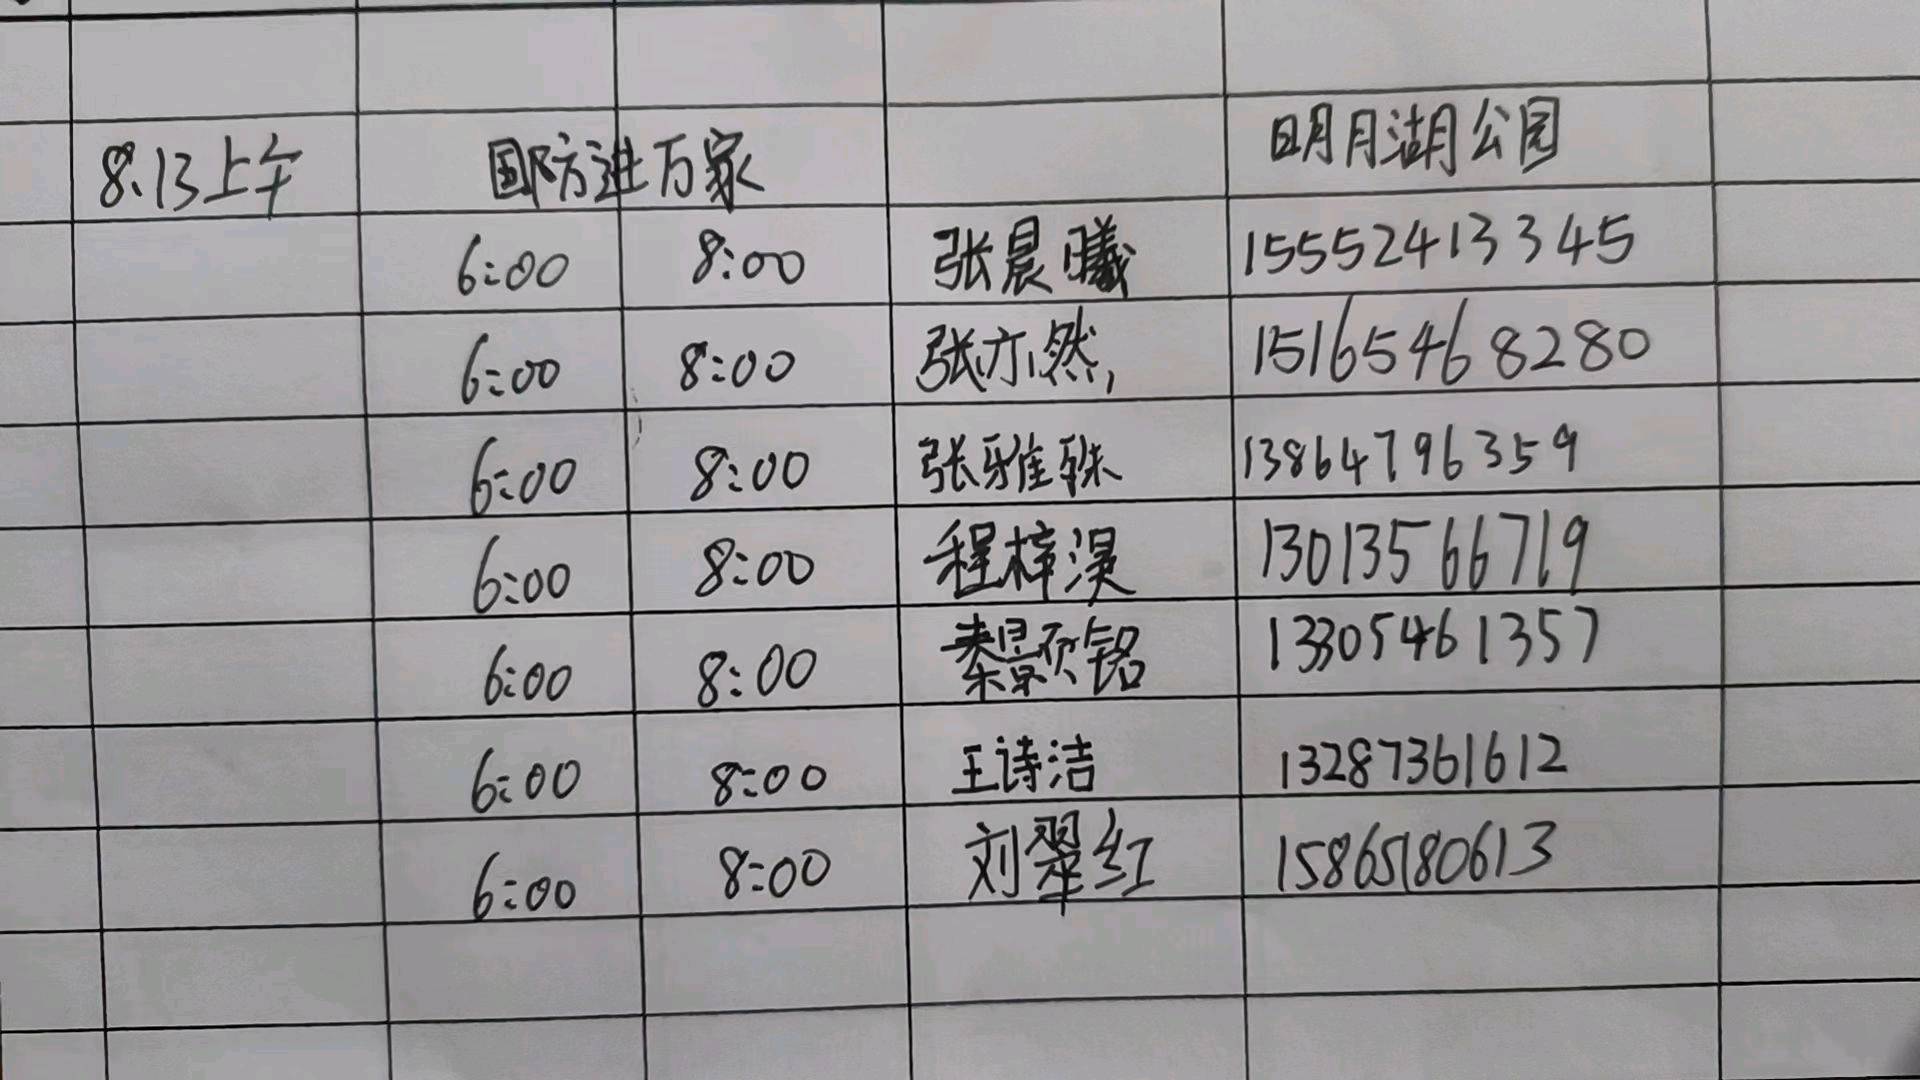 8.13上午 国防进万家 明月湖公园
6:00 8:00 张晨曦 15552413345
6:00 8:00 张亦然 15165468280
6:00 8:00 张雅姝 13864796359
6:00 8:00 程梓淏 13013566719
6:00 8:00 秦景欣铭 13305461357
6:00 8:00 王诗洁 13287361612
6:00 8:00 刘翠红 15865180613